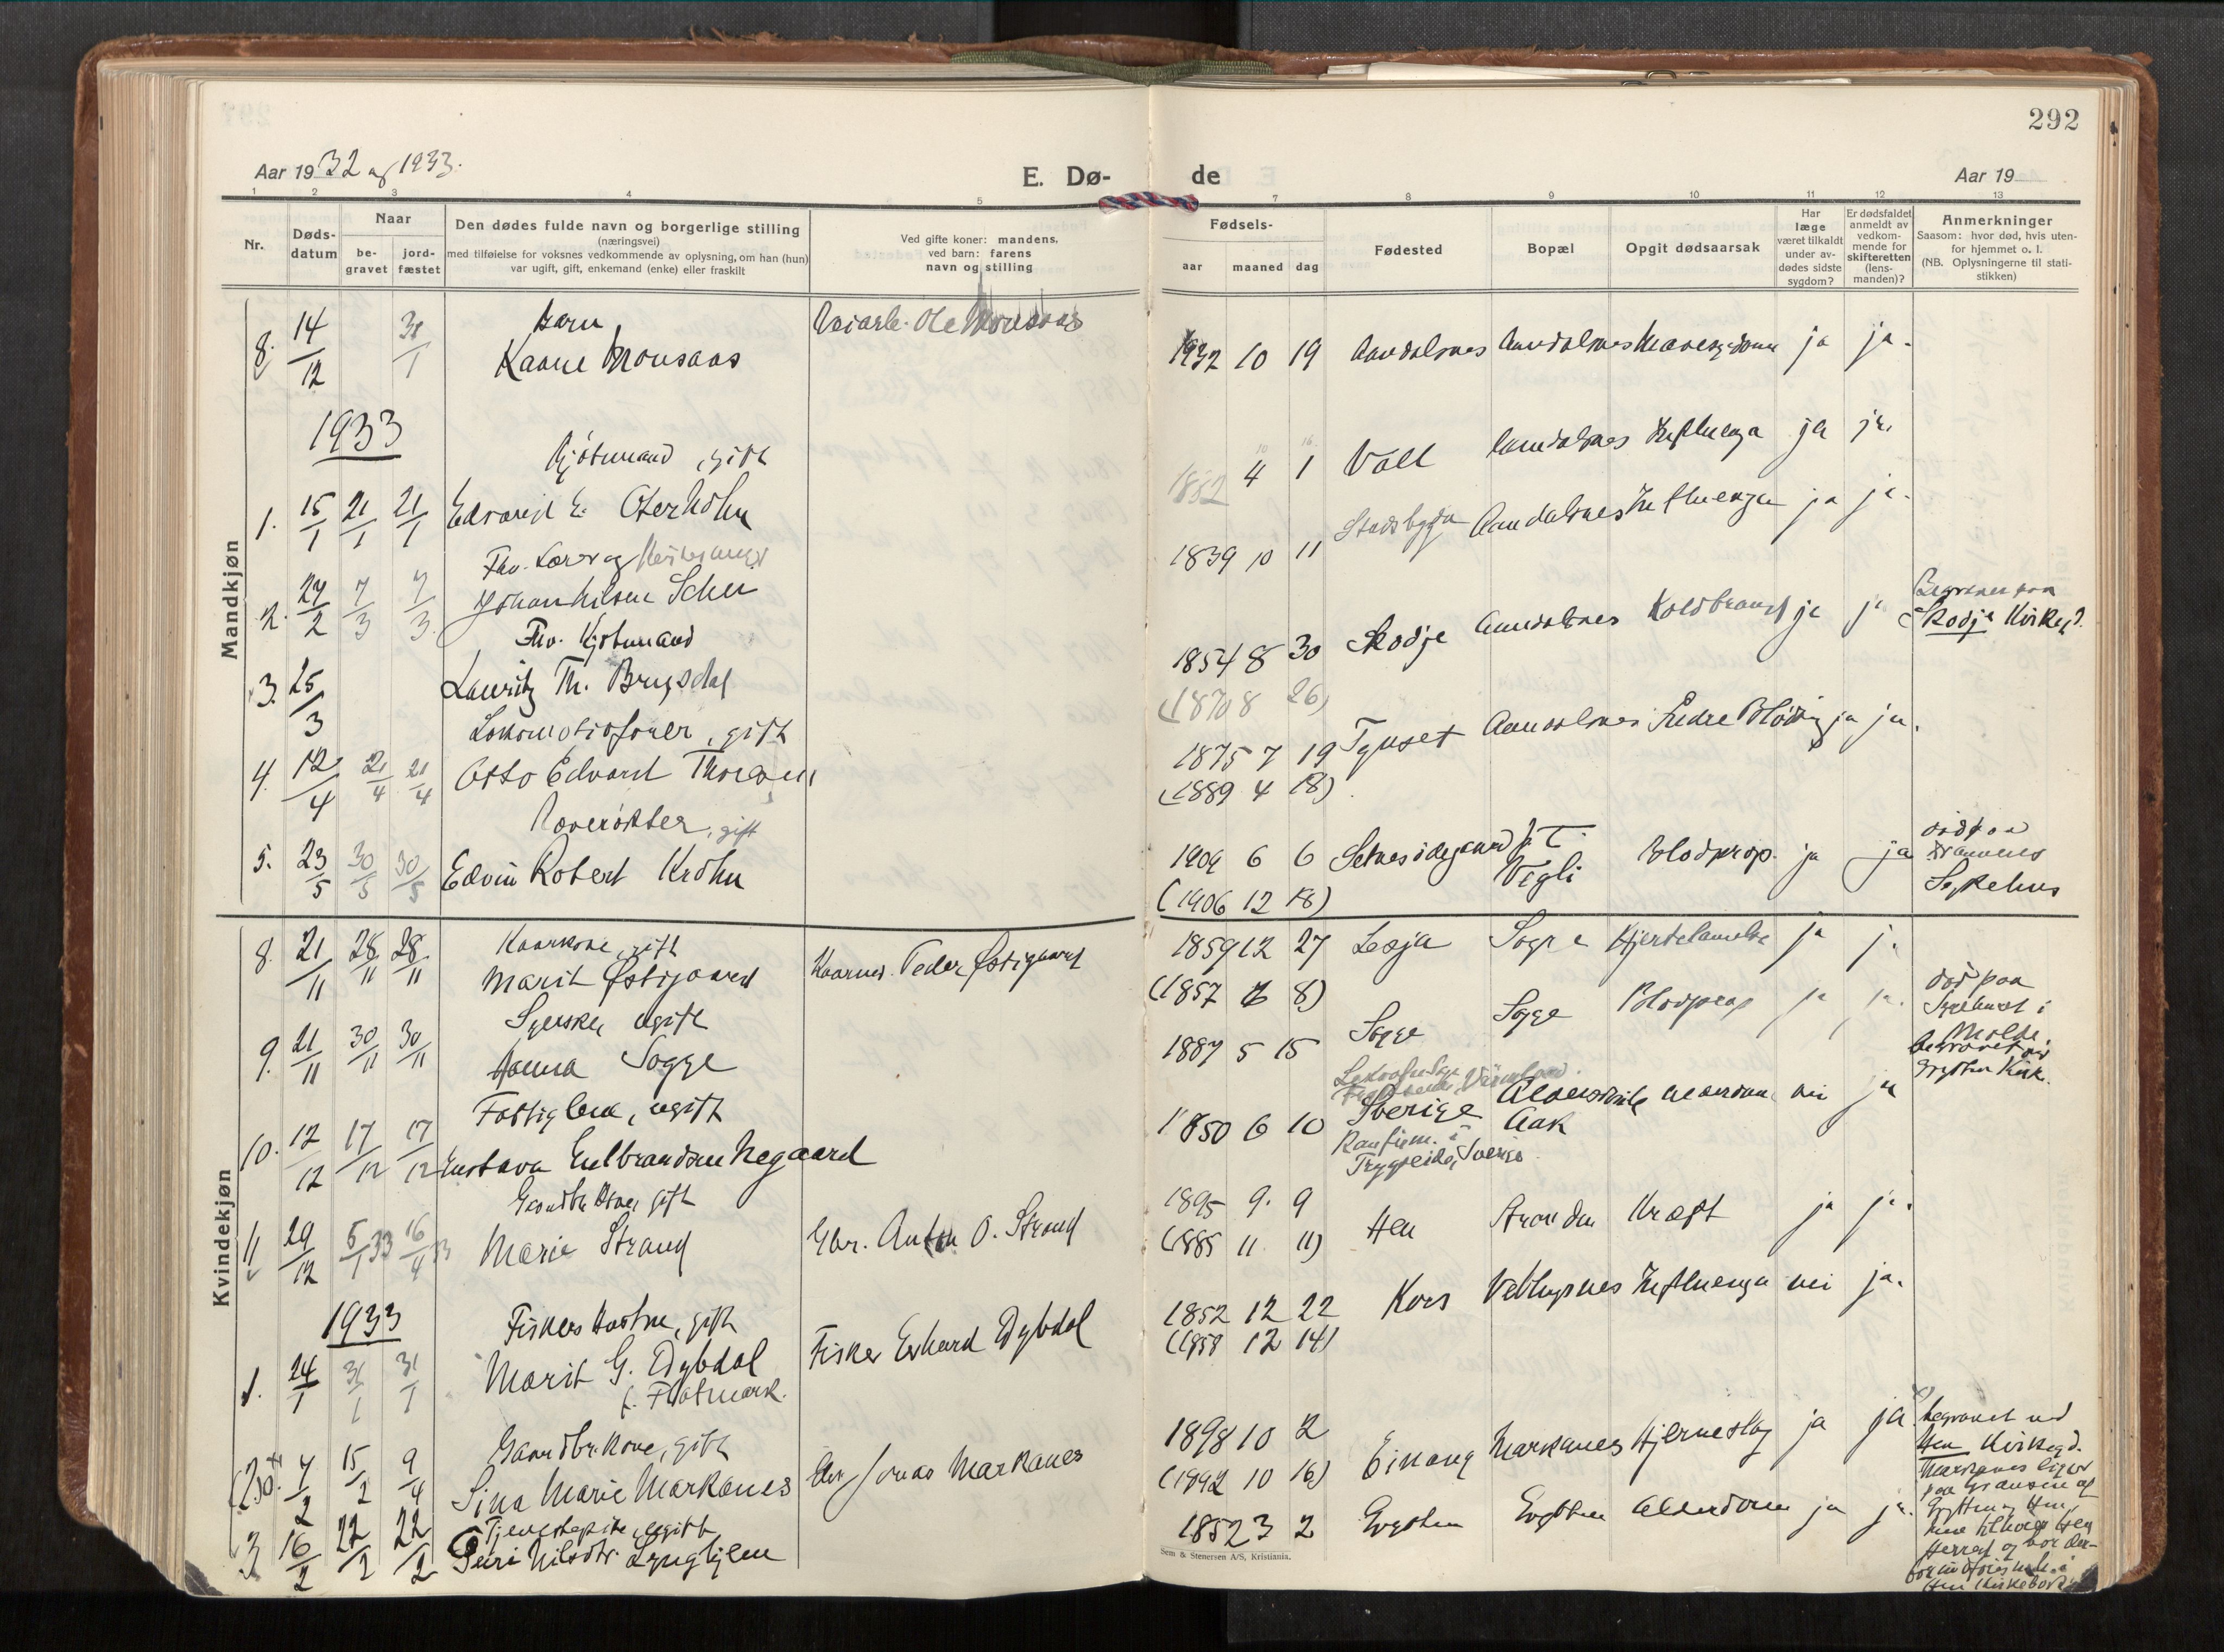 292
Aar 1932 og 1933.
E. Dø-
de
Aar 19
1 2 3 4 5 7 8 9 10 11 12 13
Nr.
Døds-
datum
Naar
be-
gravet
jord-
fæstet
Den dødes fulde navn og borgerlige stilling
(næringsvei)
med tilføielse for voksnes vedkommende av oplysning, om han (hun)
var ugift, gift, enkemand (enke) eller fraskilt
Ved gifte koner: mandens,
ved barn: farens
navn og stilling
Fødsels-
aar maaned dag
Fødested
Bopæl
Opgit dødsaarsak
Har
læge
været tilkaldt
under av-
dødes sidste
sygdom?
Er dødsfaldet
anmeldt av
vedkom-
mende for
skifteretten
(lens-
manden)?
Anmerkninger
Saasom: hvor død, hvis uten-
for hjemmet o. l.
(NB. Oplysningerne til stati-
stikken)
Mandkjøn
8. 14/12 31/1
Barn
Kaare Monsaas
Ole Monsaas
1932 10 19 Aandalsnes Aandalsnes Mavesygdom ja ja.
1933
Kjøbmand, gift
1. 15/1 21/1 21/1 Edvard E. Oterholm
1852 4 1 Voll Aandalsnes Influenza ja ja.
Fhv. Lærer og
2. 27/2 7/3 7/3 Johan Nilsen Schei
1839 10 11 Stadsbygda Aandalsnes Influenza ja ja.
Fhv. Kjøbmand
3. 25/3 Lauritz Th. Brusdal
1854 8 30 Skodje Aandalsnes Koldbrand ja ja
(1870 8 26)
Begraves paa
Skodje Kirkeg.
Lokomotivfører, gift
4. 12/4 21/4 21/4 Otto Edvard Thoresen
1875 7 19 Tynset Aandalsnes Indre Blødning ja ja.
(1889 4 18)
Røverøkter, gift
5. 23/5 30/5 30/5 Edvin Robert Krohn
1909 6 6 Setnesødegaard p. t.
Vegli Blodprop. ja ja
(1906 12 18)
død paa
Drammens
Sykehus
Kvindekjøn
Kaarkone, gift
8. 21/11 28/11 28/11 Marit Østigaard
Kaarmd. Peder Østigaard
1859 12 27 Lesja Sogge Hjertelamelse ja ja
(1857 7 8)
Syerske, ugift
9. 21/11 30/11 30/11 Hanna Sogge
1887 5 15 Sogge Sogge Blodprop ja ja.
død paa
Sykehuset i
Molde.
Begravet ved
Grytten Kirk.
Fattiglem, ugift
10. 12/12 17/12 17/12 Gustava Gulbrandsen Negaard
1850 6 10 Sverige
Aak Alderdom nei ja
Sverige
Gaardbr. kone, gift
11 29/12 6/1 33 16/4 33 Marie Strand
Gbr. Anton O. Strand
1895 9. 9 Hen Stranden Kræft ja ja.
(1885 11 11)
1933
Fiskers hustru, gift
1. 24/1 31/1 31/1 Marit G. Dybdal
f. Flatmark.
Fisker Erhard Dybdal
1852 12 22 Kors Veblungsnes Influenza nei ja.
(1858 12 14)
Gaardbr. kone, gift
7/2 15/2 9/4 Sina Marie Markanes
Gbr Jonas Markanes
1898 10 2 Einang Markanes Hjerneslag ja ja
(1892 10 16)
begravet ved
Hen Kirkegd.
Markanes ligger
paa Grænsen af
Grytten og Hen,
men tilhører Hen
Herred og bør der-
for indføres ind i
Hen Kirkebok
Tjenestepike, ugift
3 16/2 22/2 22/2 Guri Nilsdtr. Lyngheim
1852 3 2 Grytten Grytten Alderdom ja ja.
Sem & Stenersen A/S, Kristiania.